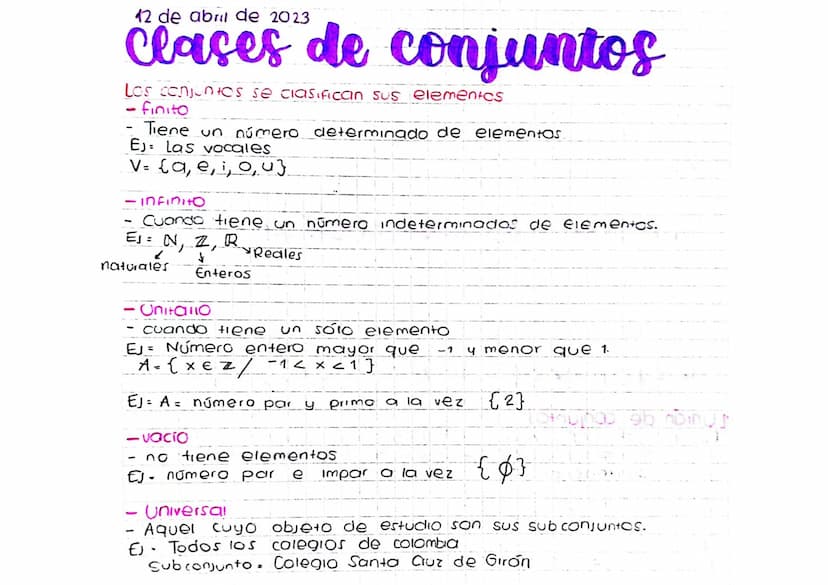 12 de abril de 2023
Clases de conjuntos
Los conjuntos se clasifican sus elementos
- finito
- Tiene un número determinado de elementos
Ej: Las vocales
V= {a, e, i, o, u}
- infinito
- Cuando tiene un número indeterminados de elementos.
Ej= N, Z, R
Reales
naturales
Enteros
- Unitario
- cuando tiene un sólo elemento
Ej= Número entero mayor que -1 y menor que 1.
A= { x ∈ Z / -1 < x < 1 }
Ej= A= número par y primo a la vez {2}
- vacio
- no tiene elementos
Ej- número par e impar a la vez {ϕ}
- Universal
- Aquel cuyo objeto de estudio son sus subconjuntos.
Ej - Todos los colegios de colomba
Subconjunto = Colegio Santa Cruz de Girón